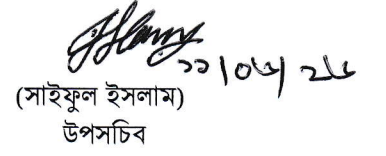 ১১/০৬/২৬
(সাইফুল ইসলাম)
উপসচিব